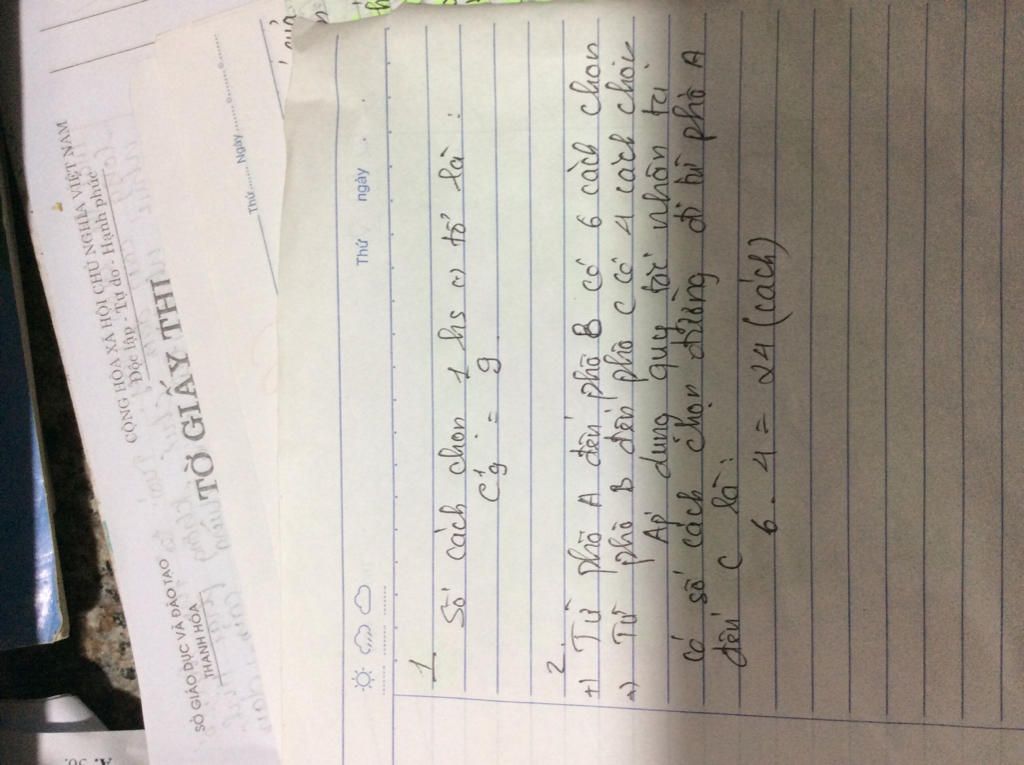 CỘNG HÒA XÃ HỘI CHỦ NGHĨA VIỆT NAM
Độc lập - Tự do - Hạnh phúc
SỞ GIÁO DỤC VÀ ĐÀO TẠO
THANH HÓA
TỜ GIẤY THI
Thứ........ Ngày............
Thứ ngày
1.
Số cách chọn 1 hs ở tổ là :
C¹9 = 9
2.
+) Từ phố A đến phố B có 6 cách chọn
Từ phố B đến phố C có 4 cách chọn
Áp dụng quy tắc nhân ta
có số cách chọn đường đi từ phố A
đến C là:
6 . 4 = 24 (cách)
A. 30.